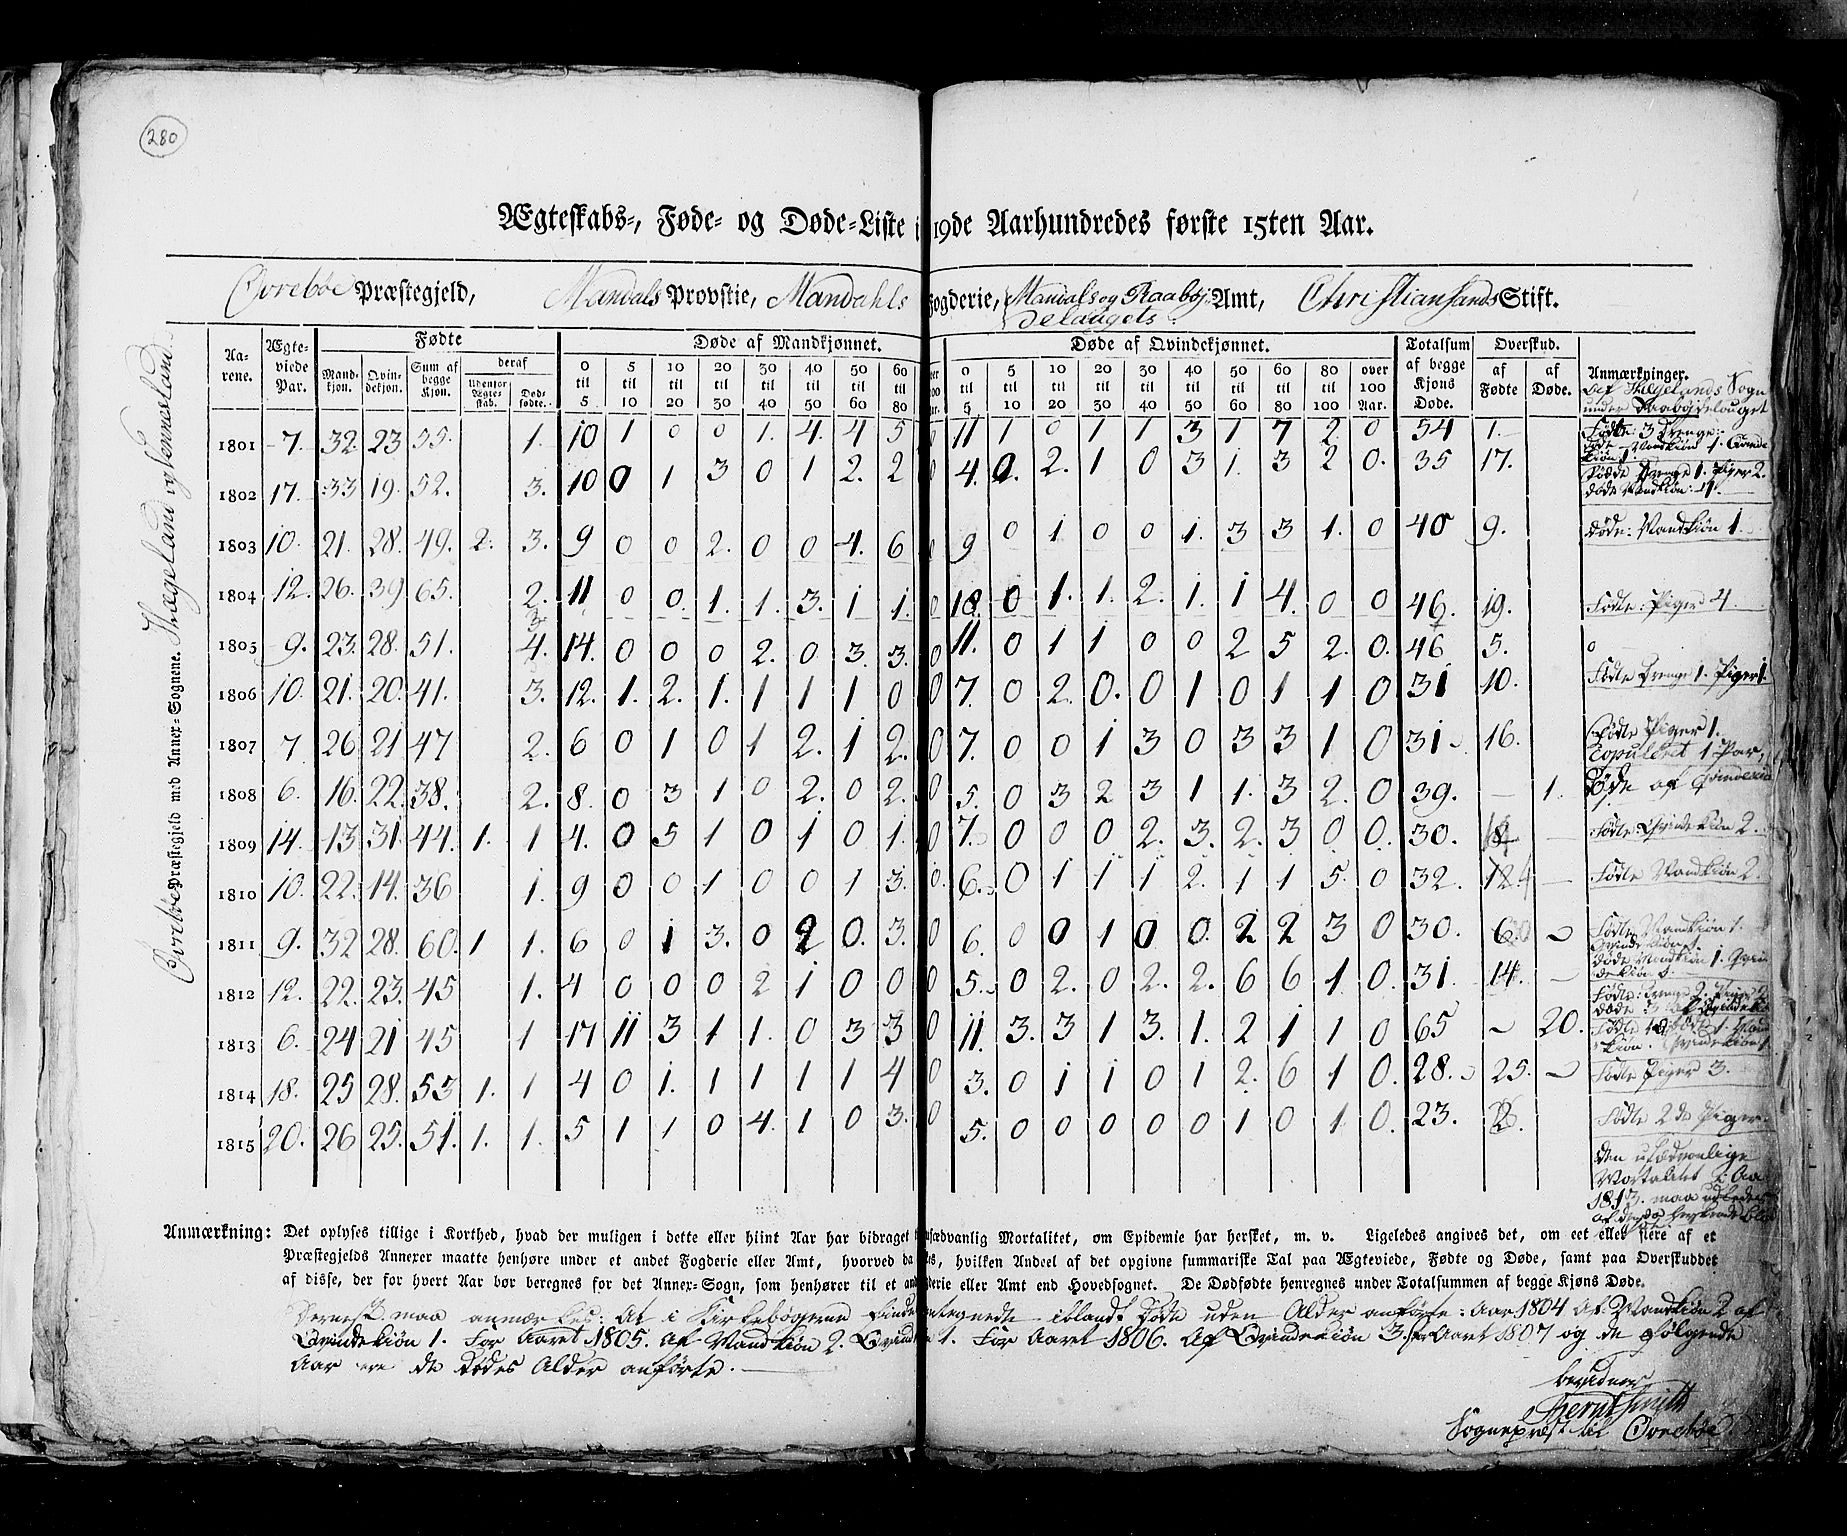 280
Ægteskabs-, Føde- og Døde-Liste i 19de Aarhundredes første 15ten Aar.
Øvrebøe Præstegjeld, Mandals Provstie, Mandahls Fogderie, Mandals og Raabøj- Amt, Christiansands Stift.
delaugets
Øvrebøe Præstegjeld med Annex-Sognene. Hægeland og Vennesland
Aarene. Ægteviede Par. Fødte Døde af Mandkjønnet. Døde af Qvindekjønnet. Totalsum af begge Kjøns Døde. Overskud. Anmærkninger.
Mandkjøn. Qvindekjøn. Sum af begge Kjøn. deraf Udenfor Ægteskab. Dødfødte. 0 til 5 5 til 10 10 til 20 20 til 30 30 til 40 40 til 50 50 til 60 60 til 80 0 til 5 5 til 10 10 til 20 20 til 30 30 til 40 40 til 50 50 til 60 60 til 80 80 til 100 over 100 Aar. af Fødte af Døde.
Af Hægelands Sogn
under Raabøjdelauget
1801 7. 32. 23 55. 1. 10 1 0 0 1. 4. 4 5 0 11 1 0 1 1 3 1 7 2. 0 54 1. Fødte: 3 Drenge:
1802 17. 33 19. 52. 3. 10 0 1 3 0 1 2. 2 0 4. 0. 2. 1 0 3 1. 3 2 0. 35 17. Fødde Drenge 1. Piger 2.
døde Mandkiøn:
1803 10. 21. 28. 49. 2. 3. 9 0 0 2. 0 0 4. 6 0 9 0 1 0 0 1. 3 3 1. 0 40 9. døde: Mandkiøn 1.
1804 12. 26. 39 65. 2. 11 0 0. 1. 1. 3. 1 1. 0 18. 0 1. 1. 2. 1. 1 4. 0 0 46. 19. Fødte: Piger 4
1805 9. 23. 28. 51. 4. 14. 0 0 0 2. 0 3. 3. 0 11. 0 1 1 0 0 2 5 2. 0. 46 5. 0
1806 10. 21. 20. 41. 3. 12. 1. 2. 1. 1 1 1 0 0 7. 0 2. 0. 0 1 0 1 1 0 31 10. Fødte Drenge 1. Piger 1.
1807 7 26 21 47 2. 6 0 1 0 1 2. 1 2. 0 7. 0 0 1 3 0 3 3 1 0 31 16. Fødte Piger 1.
Copuleret 1 Par,
1808 6. 16. 22. 38. 2. 8. 0 3 1 0 2. 0 2. 0 5. 0 3 2 3 1 1. 3 2. 0 39. — 1. Døde af
1809 14. 13. 31. 44. 1. 1 4. 0 5 1 0 1 0 1. 0 7. 0 0 0 2. 3. 2. 3 0 0. 30. — Fødte Qvindekiøn 2.
1810 10. 22. 14. 36 1. 9 0 0 1 0 0 1 3. 0. 6. 0 1 1 1 2. 1 1 5. 0 32. — Fødte Mandkiøn 2.
1811 9. 32 28. 60. 1 1. 6 0 1 3. 0 2 0. 3. 0 6. 0 0 1 0 0. 2 2 3 0 30. Fødte Mandkiøn 1.
Qvindekiøn 1.
døde Mandkiøn 1. Qvin-
dekiøn
1812 12. 22. 23. 45 1. 4 0 0 0 2 1 0 0 0 5. 0 2. 0 2. 2. 6 6 1 0. 31. 14. —
1813 6. 24 21 45 1 17 11 3 1 1. 0 3 3 0 11. 3. 3 1 3. 1. 2 1 1 0 65 20.
1814 18. 25 28. 53 1. 1 4 0 1. 1 1 1 1 4 0 3. 0 1 1 0 1 2. 6 1 0. 28. 25. Fødte Piger 3.
1815 20. 26 25. 51. 1. 1. 5 1 1 0 4. 1 0 3. 0 5. 0 0 0 0 0 1 0 1 0. 23. Fødte 2de Piger.
den usædvanlige
Mortalitet i Aa
1813. maa udledes
Anmærkning: Det oplyses tillige i Korthed, hvad der muligen i dette eller hiint Aar har bidraget til usædvanlig Mortalitet, om Epidemie har hersket, m. v. Ligeledes angives det, om eet eller flere af et
Præstegjelds Annexer maatte henhøre under et andet Fogderie eller Amt, hvorved da hvilken Andeel af det opgivne summariske Tal paa Ægteviede, Fødte og Døde, samt paa Overskuddet
af disse, der for hvert Aar bør beregnes for det Annex-Sogn, som henhører til et andet Fogderie eller Amt end Hovedsognet. De Dødfødte henregnes under Totalsummen af begge Kjøns Døde.
maa anmærkes: At i Kirkebøgerne findes antegnede iblandt Døde uden Alder anførte: Aar 1804 Af Mandkiøn 2 af
Qvindekiøn 1. For Aaret 1805. Af Mandkiøn 2. Qvindek: 1. For Aaret 1806. Af Qvindekiøn 3. For Aaret 1807 og de følgende
Aar ere de Dødes Alder anførte. —
bevidner
Bernt Smith
Sognepræst til Øvrebøe